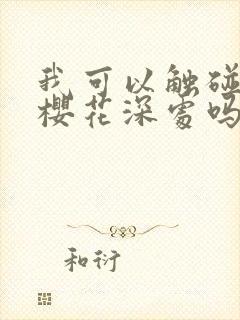 我可以触碰
樱花深处吗
和衍